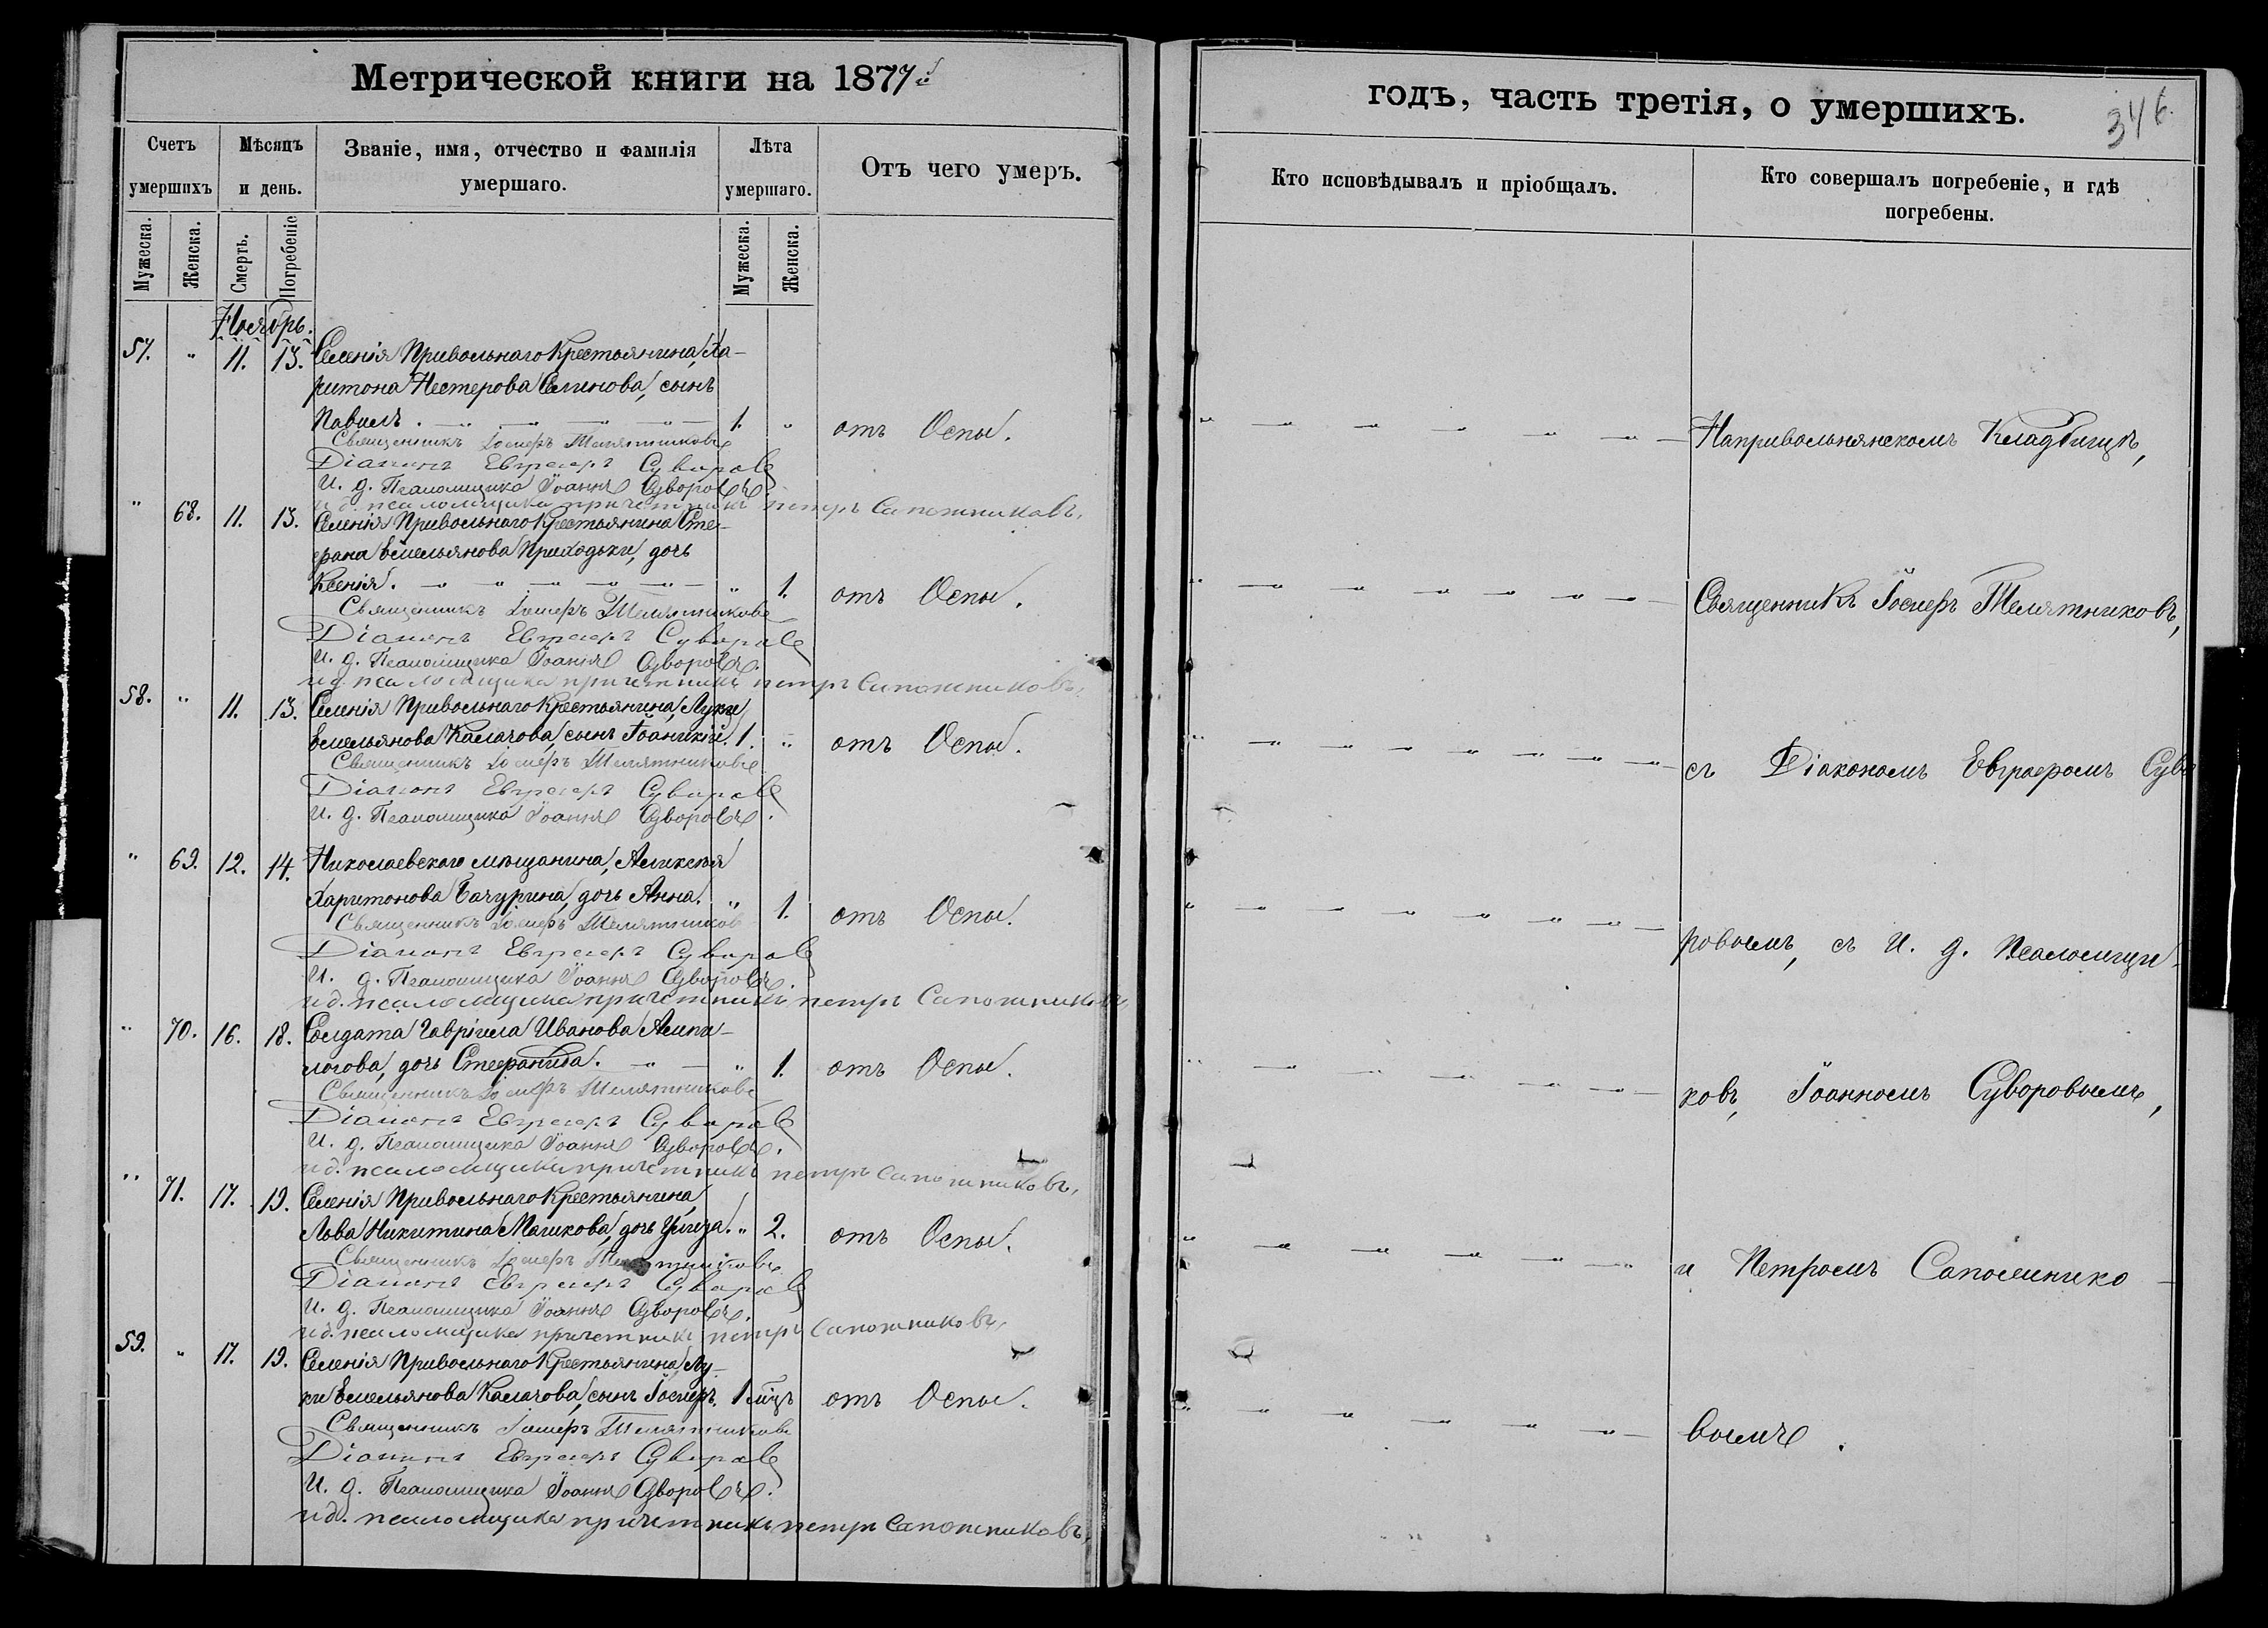 Метрической книги на 1877й
годъ, часть третія, о умершихъ.
346.
Счетъ умершихъ
Мѣсяцъ и день.
Званіе, имя, отчество и фамилія умершаго.
Лѣта умершаго.
Отъ чего умеръ.
Кто исповѣдывалъ и пріобщалъ.
Кто совершалъ погребеніе, и гдѣ погребены.
Мужеска.
Женска.
Смерть.
Погребеніе
Мужеска.
Женска.
Ноябрь.
57. " 11. 13. Селенія Привольнаго Крестьянина, Ха-
ритона Нестерова сынъ
Павелъ. 1. " отъ Оспы.
Священникъ Іосифъ Телятниковъ
Діаконъ Евграфъ Суворов
И. д. Псаломщика Іоаннъ Суворовъ.
и д. псаломщика причетникъ петръ Сапожниковъ.
" 68. 11. 13. Селенія Привольнаго Крестьянина Сте-
фана Емельянова Приходьки, дочь
Ксенія. " 1. отъ Оспы.
Священникъ Іосифъ Телятниковъ
Діаконъ Евграфъ Суворов
И. д. Псаломщика Іоаннъ Суворовъ.
и д. псаломщика причетникъ петръ Сапожниковъ.
58. " 11. 13. Селенія Привольнаго Крестьянина, Луки
Емельянова Калачова, сынъ Іоанникій. 1. " отъ Оспы.
Священникъ Іосифъ Телятниковъ
Діаконъ Евграфъ Суворов
И. д. Псаломщика Іоаннъ Суворовъ.
" 69. 12. 14. Николаевскаго мѣщанина, Алексѣя
Харитонова Бачурина, дочь Анна. " 1. отъ Оспы.
Священникъ Іосифъ Телятников
Діаконъ Евграфъ Суворов
И. д. Псаломщика Іоаннъ Суворовъ.
и д. псаломщика причетникъ петръ Сапожниковъ.
" 70. 16. 18. Солдата Гавріила Иванова
дочь Стефанида. " 1. отъ Оспы.
Священникъ Іосифъ Телятниковъ
Діаконъ Евграфъ Суворов
И. д. Псаломщика Іоаннъ Суворовъ.
и д. псаломщика причетникъ петръ Сапожниковъ.
" 71. 17. 19. Селенія Привольнаго Крестьянина,
Льва Никитина Машкова, дочь " 2. отъ Оспы.
Священникъ Іосифъ Телятниковъ
Діаконъ Евграфъ Суворов
И. д. Псаломщика Іоаннъ Суворовъ.
и д. псаломщика причетникъ петръ Сапожниковъ.
59. " 17. 19. Селенія Привольнаго Крестьянина, Лу-
ки Емельянова Калачова, сынъ Іосифъ. 1 мцъ отъ Оспы.
Священникъ Іосифъ Телятниковъ
Діаконъ Евграфъ Суворов
И. д. Псаломщика Іоаннъ Суворовъ.
и д. псаломщика причетникъ петръ Сапожниковъ.
На привольнянскомъ Кладбищѣ,
Священникъ Іосифъ Телятниковъ,
съ Діакономъ Евграфомъ Суво
ровымъ, съ И. д. Псаломщи-
ковъ, Іоанномъ Суворовымъ,
и Петромъ Сапожнико-
вымъ.